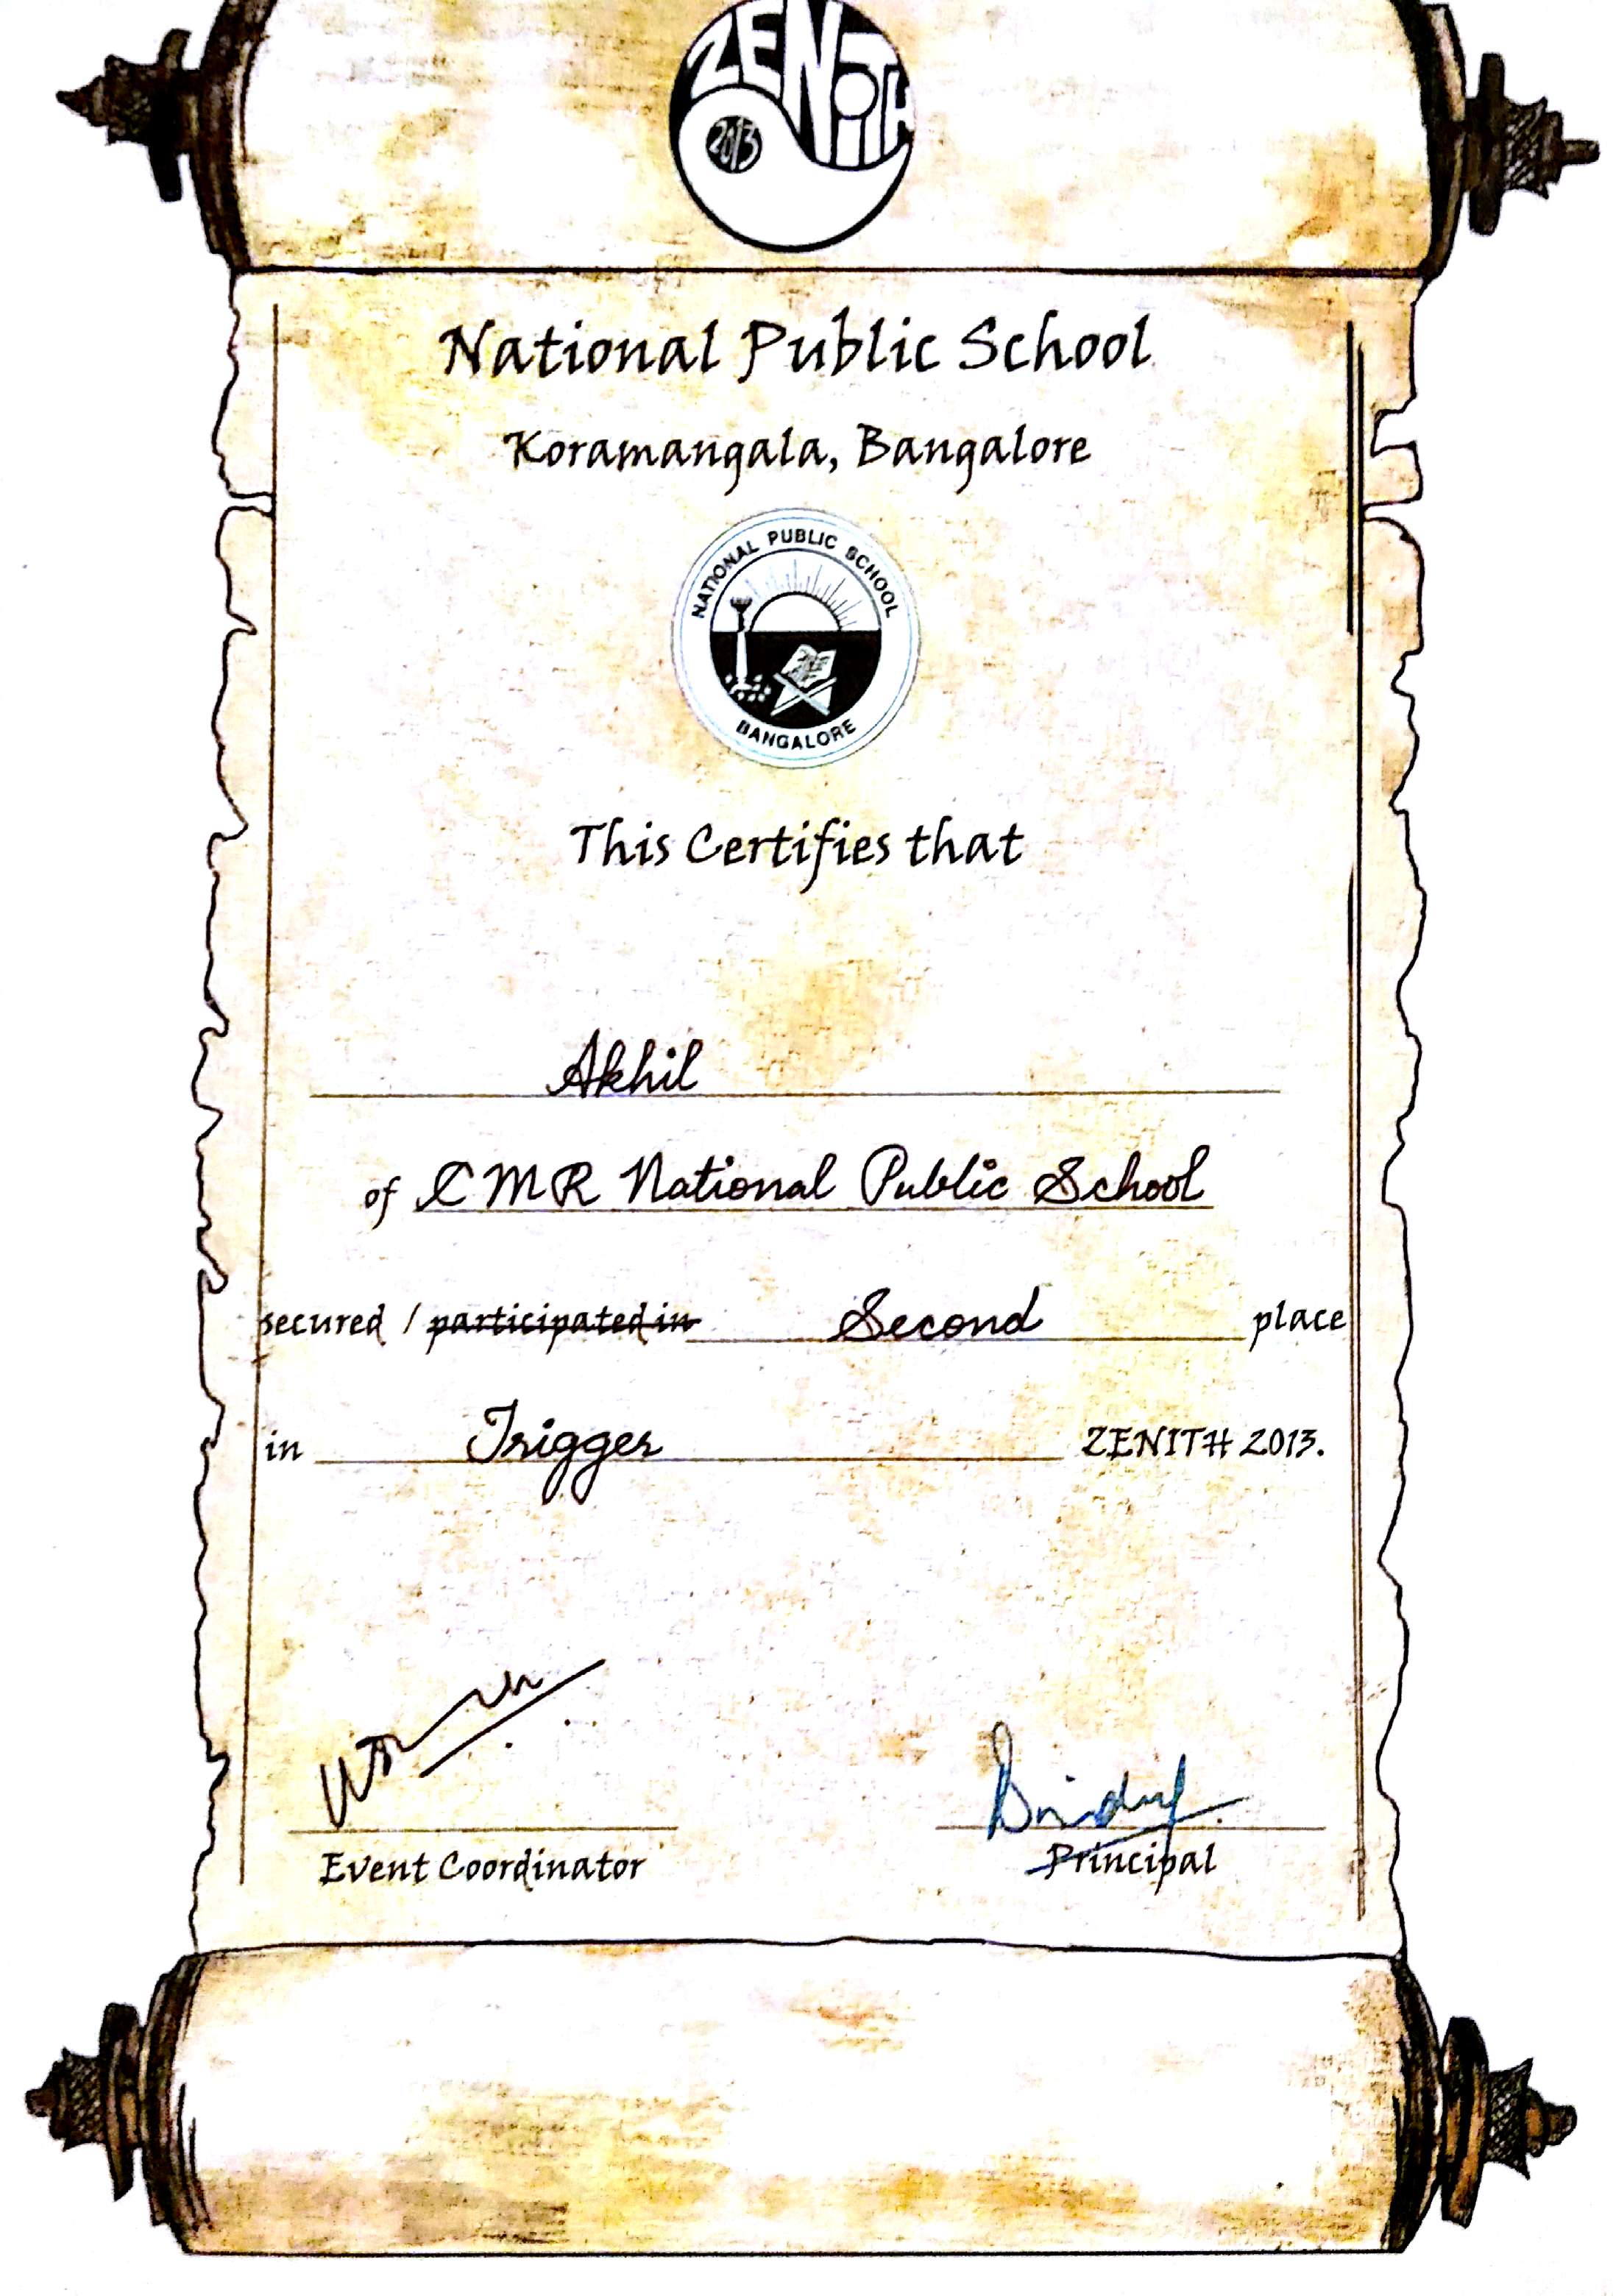 ZENITH
2013
National Public School
Koramangala, Bangalore
NATIONAL PUBLIC SCHOOL
BANGALORE
This Certifies that
Akhil
of CMR National Public School
secured / participated in Second place
in Trigger ZENITH 2013.
Event Coordinator Principal